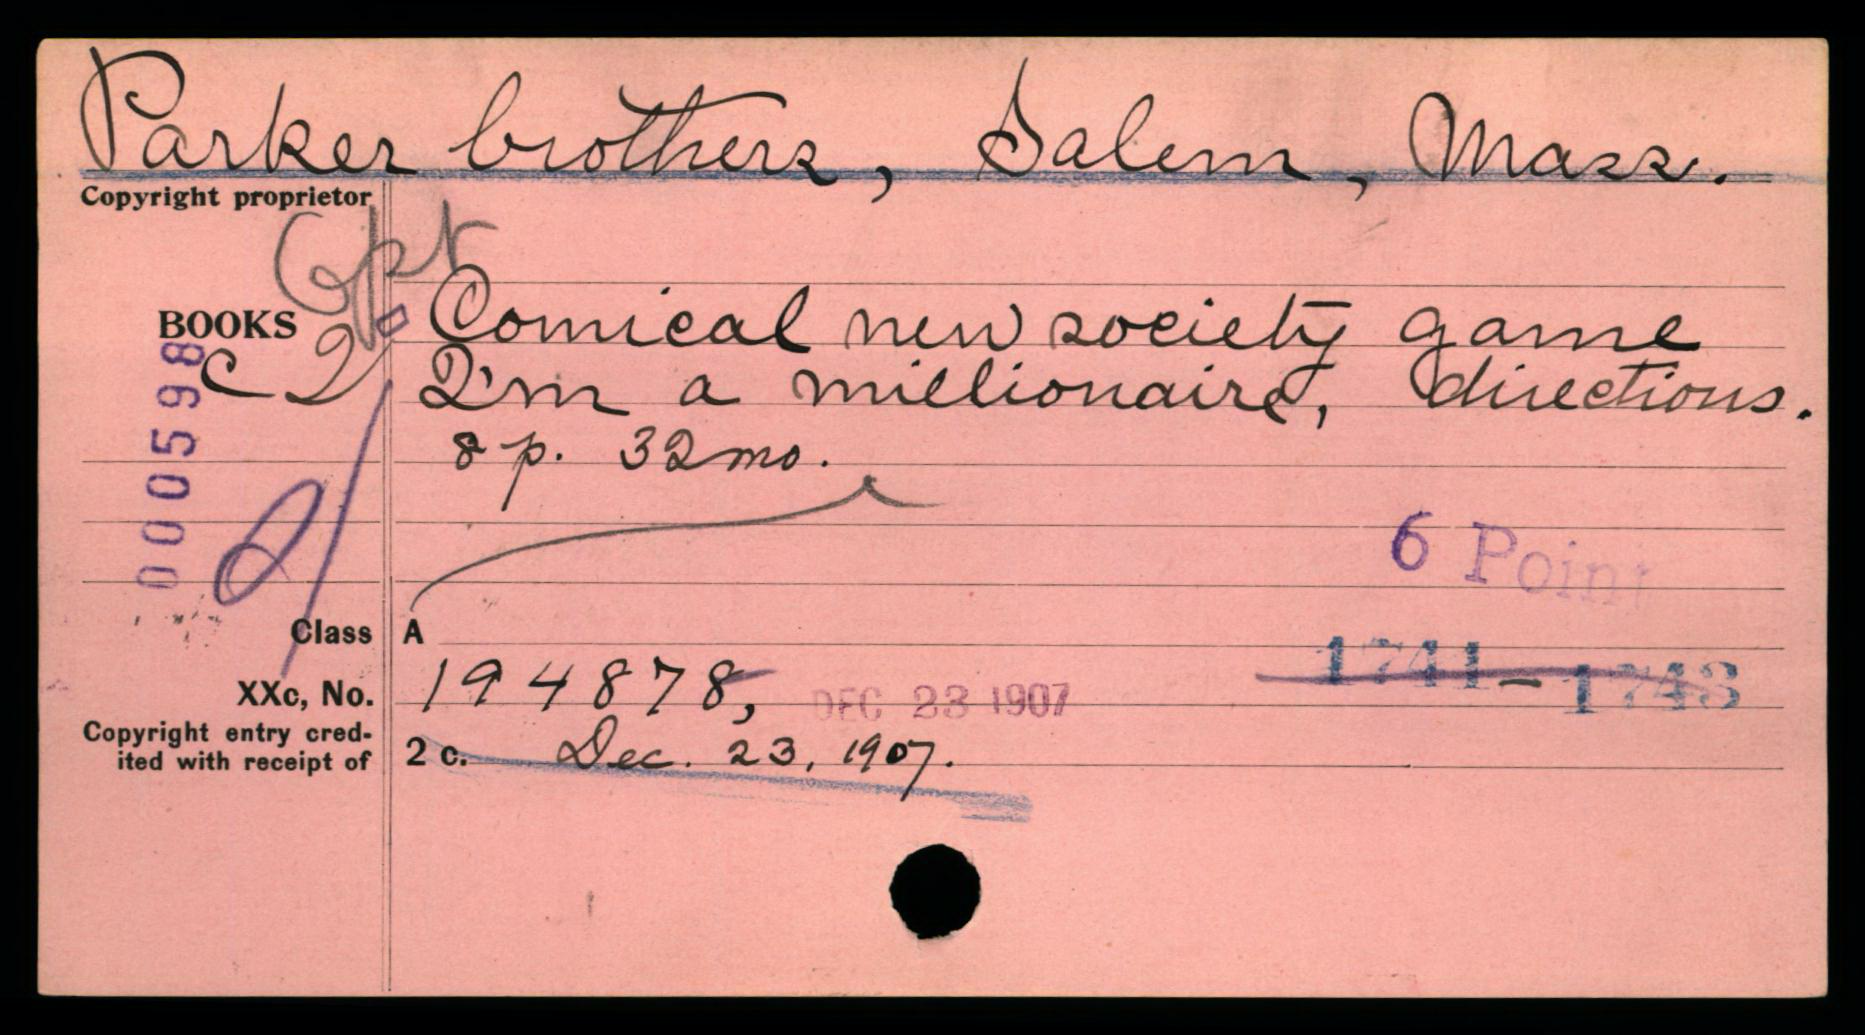 Parker brothers, Salem, Mass.
Copyright proprietor
Cpt
BOOKS
Comical new society game
c 2
I'm a millionaire, directions.
8 p. 32mo.
000598
6 Point
Class A
1741-1743
XXc, No. 194878, DEC 23 1907
Copyright entry cred-
ited with receipt of
2 c. Dec. 23, 1907.